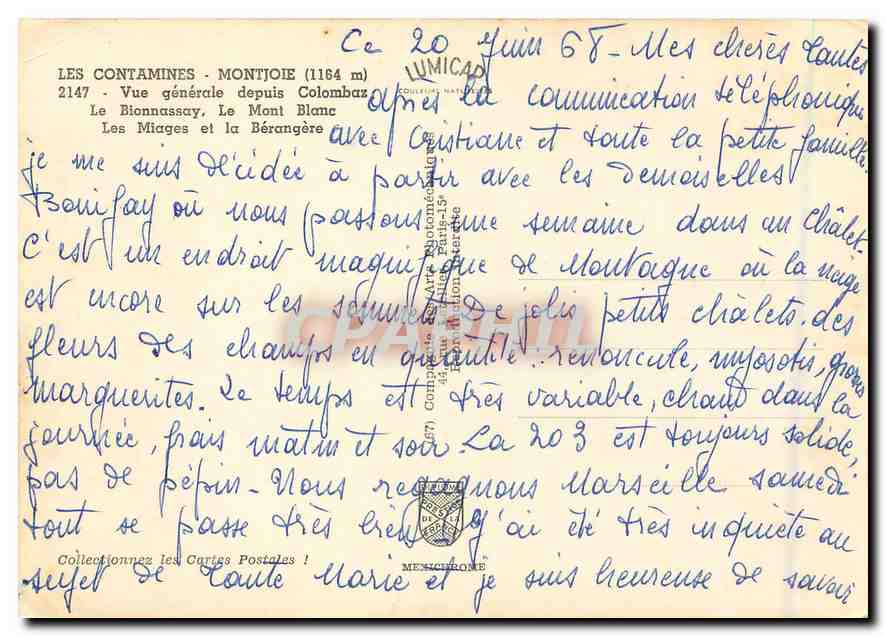 Ce 20 Juin 68 - Mes chères Tantes
LUMICAP
COULEURS NATURELLES
LES CONTAMINES - MONTJOIE (1164 m)
2147 - Vue générale depuis Colombaz
Le Bionnassay, Le Mont Blanc
Les Miages et la Bérangère
après la communication téléphonique
avec Cristiane et toute la petite famille.
je me suis décidée à partir avec les Demoiselles
Bonifay où nous passons une semaine dans un châlet.
C'est un endroit magnifique de Montagne où la neige
est encore sur les sommets. De jolis petits châlets. des
fleurs des champs en quantité. renoncule, myosotis, grosses
marguerites. Le temps est très variable, chaud dans la
journée, frais matin et soir. La 203 est toujours solide,
pas de pépin - Nous regagnons Marseille samedi
tout se passe très bien. J'ai été très inquiète au
sujet de Tante Marie et je suis heureuse de savoir
Collectionnez les Cartes Postales !
MEXICHROME
DIPLOME
PRESTIGE
DE LA
FRANCE
(67) Compagnie des Arts Photomécaniques
44, rue Letellier, Paris-15e
Reproduction interdite
CPAPHIL